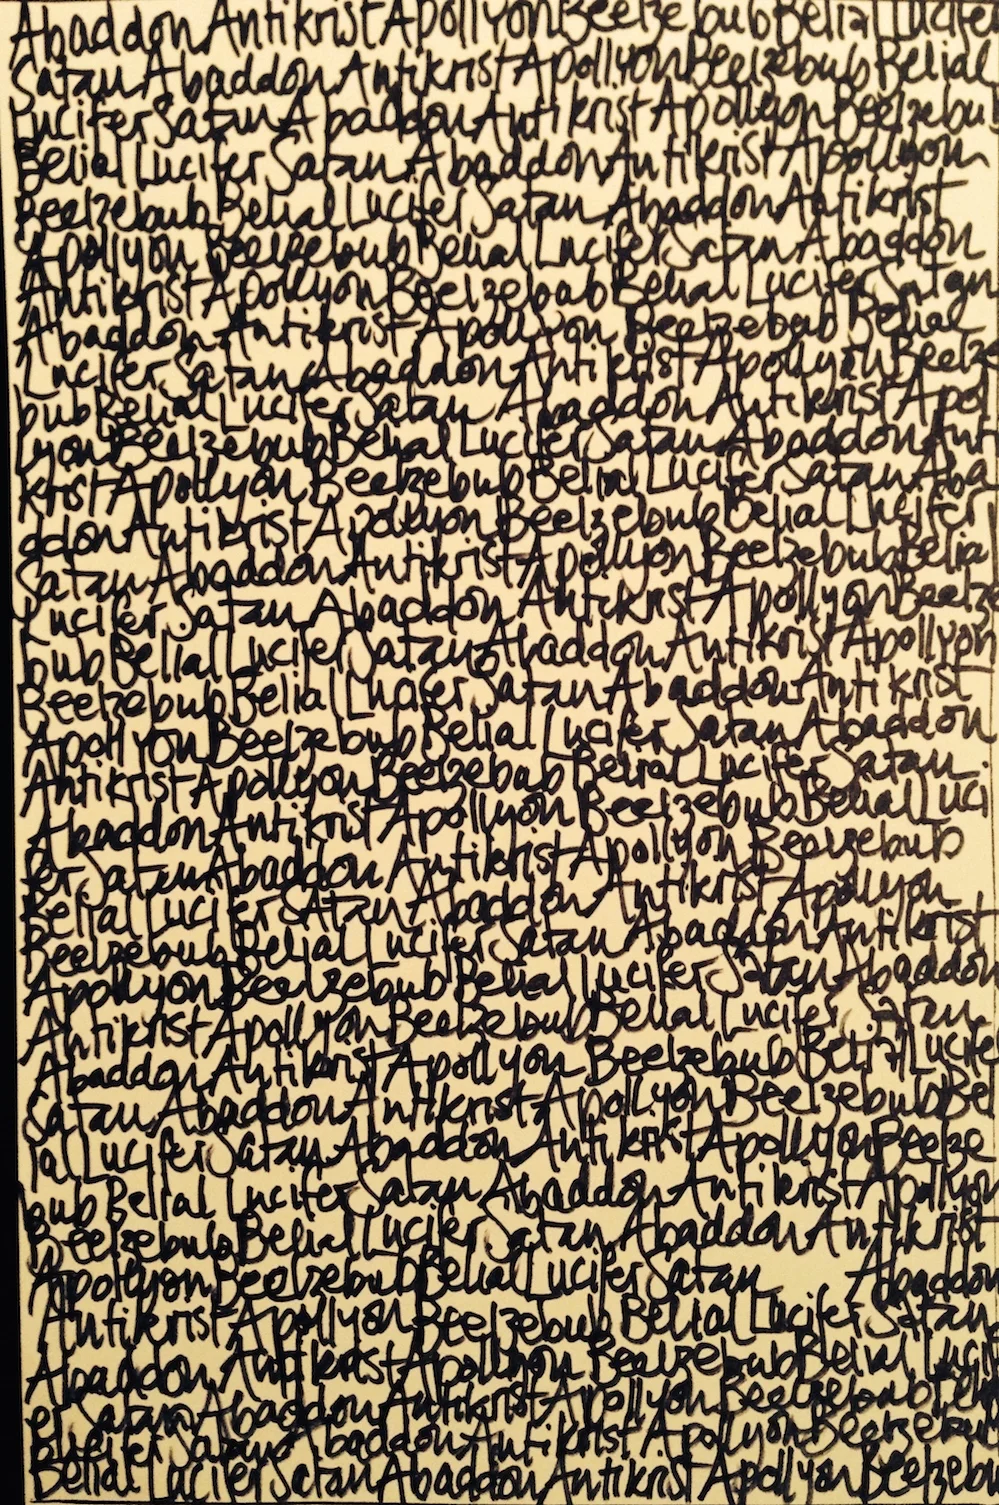 Abaddon Antikrist Apollyon Beelzebub Belial Lucifer
Satan Abaddon Antikrist Apollyon Beelzebub Belial
Lucifer Satan Abaddon Antikrist Apollyon Beelzebu
Belial Lucifer Satan Abaddon Antikrist Apollyon
Beelzebub Belial Lucifer Satan Abaddon Antikrist
Apollyon Beelzebub Belial Lucifer Satan Abaddon
Antikrist Apollyon Beelzebub Belial Lucifer Satan
Abaddon Antikrist Apollyon Beelzebub Belial
Lucifer Satan Abaddon Antikrist Apollyon Beelze
bub Belial Lucifer Satan Abaddon Antikrist Apol
lyon Beelzebub Belial Lucifer Satan Abaddon Anti
krist Apollyon Beelzebub Belial Lucifer Satan Aba
ddon Antikrist Apollyon Beelzebub Belial Lucifer
Satan Abaddon Antikrist Apollyon Beelzebub Belia
Lucifer Satan Abaddon Antikrist Apollyon Beelze
bub Belial Lucifer Satan Abaddon Antikrist Apollyon
Beelzebub Belial Lucifer Satan Abaddon Antikrist
Apollyon Beelzebub Belial Lucifer Satan Abaddon
Antikrist Apollyon Beelzebub Belial Lucifer Satan.
Abaddon Antikrist Apollyon Beelzebub Belial Luci
fer Satan Abaddon Antikrist Apollyon Beelzebub
Belial Lucifer Satan Abaddon Antikrist Apollyon
Beelzebub Belial Lucifer Satan Abaddon Antikrist
Apollyon Beelzebub Belial Lucifer Satan Abaddon
Antikrist Apollyon Beelzebub Belial Lucifer Satan
Abaddon Antikrist Apollyon Beelzebub Belial Lucife
Satan Abaddon Antikrist Apollyon Beelzebub Bel
ial Lucifer Satan Abaddon Antikrist Apollyon Beelze
bub Belial Lucifer Satan Abaddon Antikrist Apollyon
Beelzebub Belial Lucifer Satan Abaddon Antikrist
Apollyon Beelzebub Belial Lucifer Satan Abaddon
Antikrist Apollyon Beelzebub Belial Lucifer Satan
Abaddon Antikrist Apollyon Beelzebub Belial Luci
er Satan Abaddon Antikrist Apollyon Beelzebub
Lucifer Satan Abaddon Antikrist Apollyon Beelzebub
Belial Lucifer Satan Abaddon Antikrist Apollyon Beelzebu